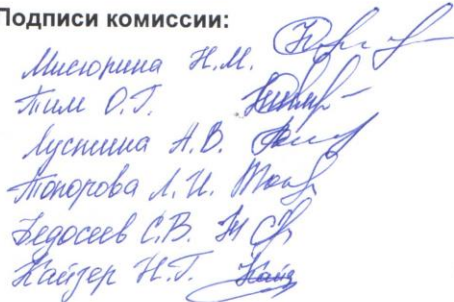 Подписи комиссии:
Мисюрина Н.М.
Тим О.Г.
Лускина А.В.
Топорова Л.И.
Федосеев С.В.
Кайзер Н.Г.